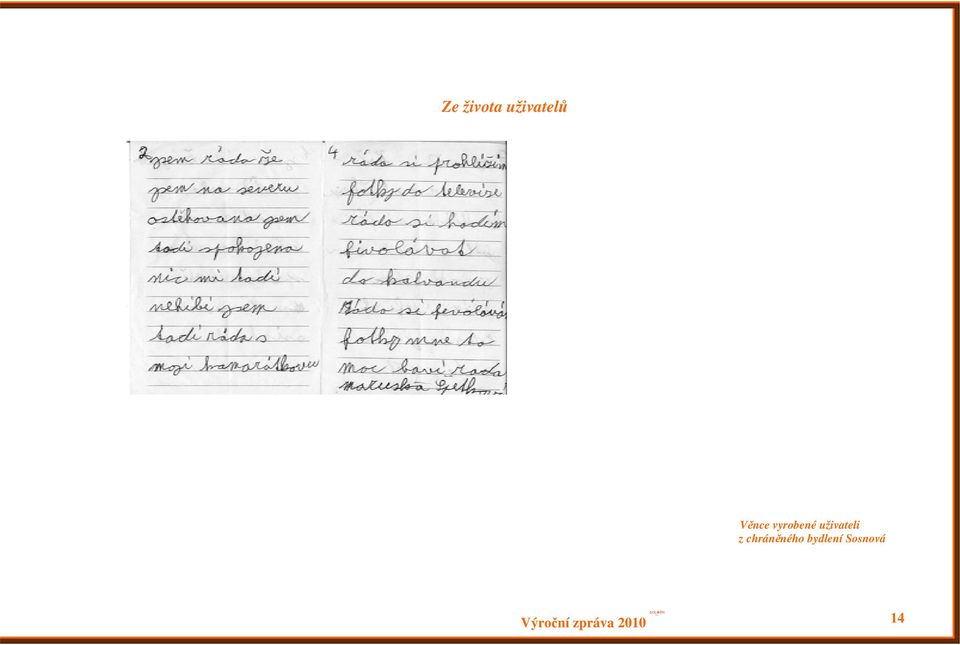 Ze života uživatelů
2 jsem ráda že
jsem na severu
ostěhovana jsem
tadi spokojena
nic mi tadi
nehibí jsem
tadí ráda s
mojí kamarátkovu
4 ráda si prohlížím
fotky do televise
rádo si hodím
fivolávat
do kalvandu
Rádo si fevólává
fotky mne to
moc baví rada
maruska
Věnce vyrobené uživateli
z chráněného bydlení Sosnová
Výroční zpráva 2010
14